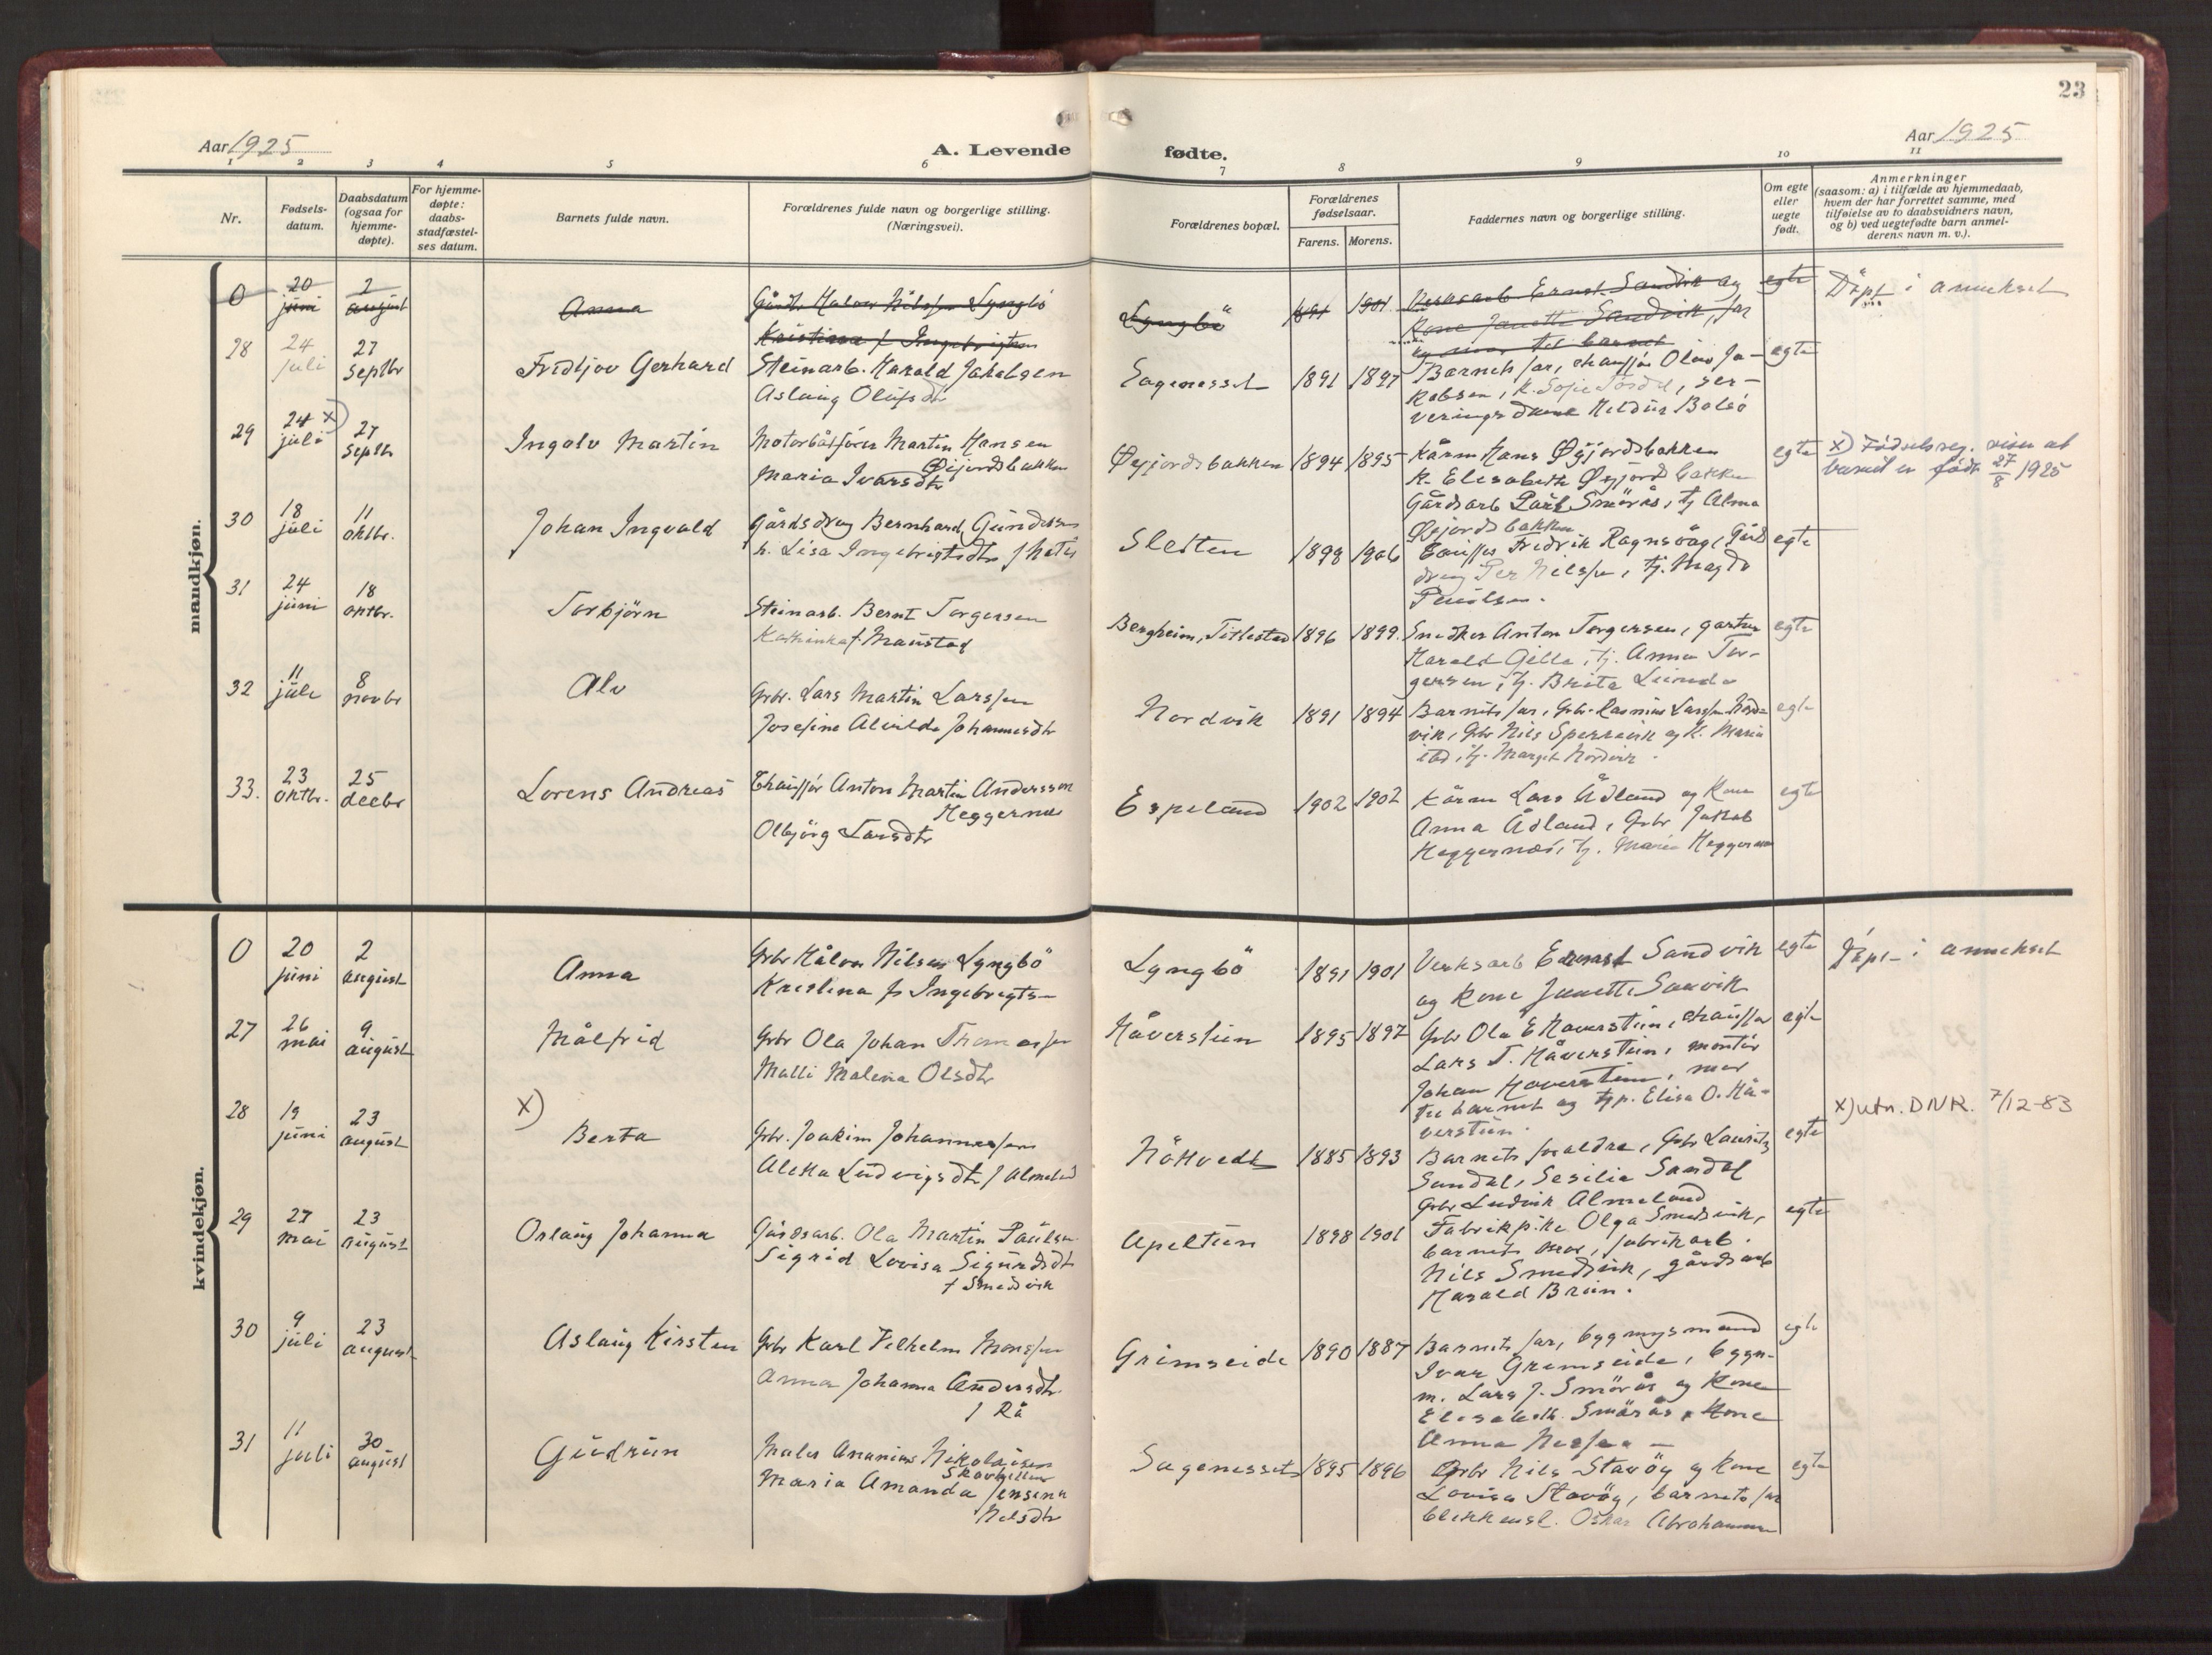 23
Aar 1925
A. Levende
fødte.
Aar 1925
1 2 3 4 5 6 7 8 9 10 11
Nr.
Fødsels-
datum.
Daabsdatum
(ogsaa for
hjemme-
døpte).
For hjemme-
døpte:
daabs-
stadfæstel-
ses datum.
Barnets fulde navn.
Forældrenes fulde navn og borgerlige stilling.
(Næringsvei).
Forældrenes bopæl.
Forældrenes
fødselsaar.
Farens. Morens.
Faddernes navn og borgerlige stilling.
Om egte
eller
uegte
født.
Anmerkninger
(saasom: a) i tilfælde av hjemmedaab,
hvem der har forrettet samme, med
tilføielse av to daabsvidners navn,
og b) ved uegtefødte barn anmel-
derens navn m. v.).
mandkjøn.
0
20
juni
2
august
Anna
Halvor Nilsen Lyngbö
Kristiana f. Ingebrigtsen
Lyngbö
1891 1901
Verksarb Ernst Sandvik og
Kone Janette Sandvik, far
og mor til barnet
egte
Döpt i annekset
28
24
juli
27
septbr
Fridtjov Gerhard
Steinarb. Harald Jakobsen
Aslaug Olufsdtr
Sagenesset
1891 1897
Barnets far, chauffør Olav Ja-
kobsen, K. Sofie, ser-
veringsdame Heldur Bolsö
egte
29
24 x)
juli
27
septbr
Ingolv Martin
Motorbåtfører Martin Hansen
Øijordsbakken
Maria Ivarsdtr
Øyjordsbakken
1894 1895
Kårm Hans Øyjordsbakken
K. Elisabeth Øyjordsbakken
Gårdsarb Paul Smörås, tj Alma
Øyjordsbakken
egte
x) Fødselsreg. viser at
barnet er født 27/8 1925
30
18
juli
11
oktbr.
Johan Ingvald
Gårdsdreng Bernhard Gundersen
h. Lisa Ingebrigtsdtr
Sletten
1898 1906
Fredrik Ragnsvåg, Gårds
dreng Per Nilssen, tj. Magda
Paulsen.
egte
31
24
juni
18
oktbr.
Torbjörn
Steinarb. Bernt Torgersen
Kathinka f. Maustad
Bergheim, Titlestad
1896 1899.
Snedker Anton Torgersen, gartner
Harald Gille, tj. Anna Tor-
gersen, tj. Brita Lunde
egte
32
11
juli
8
novbr
Alv
Grbr. Lars Martin Larssen
Josefine Alvilde Johannesdtr
Nordvik
1891 1894
Barnets far, Grbr. Rasmus Larssen Nord-
vik, Grbr Nils Sperrevik og K. Maria
ibd, tj. Margit Nordvik.
egte
33.
23
oktbr.
25
decbr
Lorens Andreas
Chaufför Anton Martin Andersson
Heggernes
Olbjörg Larsdtr
Espeland
1902 1902
Kårm Lars Ådland og Kone
Anna Ådland, Grbr Jakob
Heggernæs, tj. Maria Heggernæs
egte
kvindekjøn.
0
20
juni
2
august
Anna
Grbr Hålvor Nilsen Lyngbö
Kristina f. Ingebrigts-
Lyngbö
1891 1901
Verksarb Ernst Sandvik
og Kone Janette Sandvik
egte
Döpt i annekset
27
26
mai
9
august
Målfrid
Grbr Ola Johan Thomassen
Malli Malena Olsdtr
Håverstein
1895 1897
Grbr Ola E Haverstein, chauffør
Lars T. Håverstein, montör
Johan Haverstein, mor
til barnet og tjp. Elisa O. Hå-
verstein.
egte
28
19
juni
23
august
x)
Berta
Grbr. Joakim Johannessen
Aletta Ludvigsdtr f Almeland
Höttvedt
1885 1893
Barnets foreldre, Grbr Lauritz
Sandal, Sesilia Sandal
Grbr Ludvik Almeland
egte
x) utn. DNR. 7/12-83
29
27
mai
23
august
Oslaug Johanna
Gårdsarb. Ola Martin Paulsen
Sigrid Lovisa Sigurdsdtr
f Smedsvik
Apeltun
1898 1901
Fabrikpike Olga Smedsvik,
barnets mor, fabrikarb.
Nils Smedsvik, gårdsarb
Harald Brun.
egte
30
9
juli
23
august
Aslaug Kirsten
Grbr Karl Vilhelm Monssen
Anna Johanna Andersdtr
f Rå
Grimseide
1890 1887
Barnets far, bygningsmand
Ivar Grimseide, bygn-
m. Lars J. Smörås og Kone
Elisabeth Smörås, Kone
Anna
egte
31
11
juli
30
august
Gudrun
Maler Ananias Nikolaisen
Maria Amanda Jensena
Nelsdtr
Sagenesset
1895 1896
Grbr Nils Stavöy og Kone
Lovisa Stavöy, barnets far
blikkensl. Oskar Abrahamsen
egte